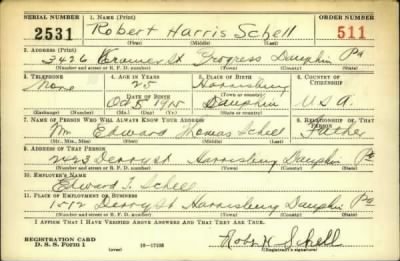 SERIAL NUMBER 1. NAME (Print) ORDER NUMBER
2531 Robert Harris Schell 511
(First) (Middle) (Last)
2. ADDRESS (Print)
3426 Kramer St Progress Dauphin Pa
(Number and street or R. F. D. number) (Town) (County) (State)
3. TELEPHONE 4. AGE IN YEARS 5. PLACE OF BIRTH 6. COUNTRY OF CITIZENSHIP
None 25 Harrisburg
DATE OF BIRTH (Town or county)
Oct 5 1915 Dauphin U.S.A.
(Exchange) (Number) (Mo.) (Day) (Yr.) (State or country)
7. NAME OF PERSON WHO WILL ALWAYS KNOW YOUR ADDRESS 8. RELATIONSHIP OF THAT PERSON
Mr Edward Thomas Schell Father
(Mr., Mrs., Miss) (First) (Middle) (Last)
9. ADDRESS OF THAT PERSON
2423 Derry St Harrisburg Dauphin Pa
(Number and street or R. F. D. number) (Town) (County) (State)
10. EMPLOYER'S NAME
Edward T. Schell
11. PLACE OF EMPLOYMENT OR BUSINESS
1512 Derry St Harrisburg Dauphin Pa
(Number and street or R. F. D. number) (Town) (County) (State)
I AFFIRM THAT I HAVE VERIFIED ABOVE ANSWERS AND THAT THEY ARE TRUE.
REGISTRATION CARD
D. S. S. FORM 1 (over) 16-17105
Robt H. Schell
(Registrant's signature)